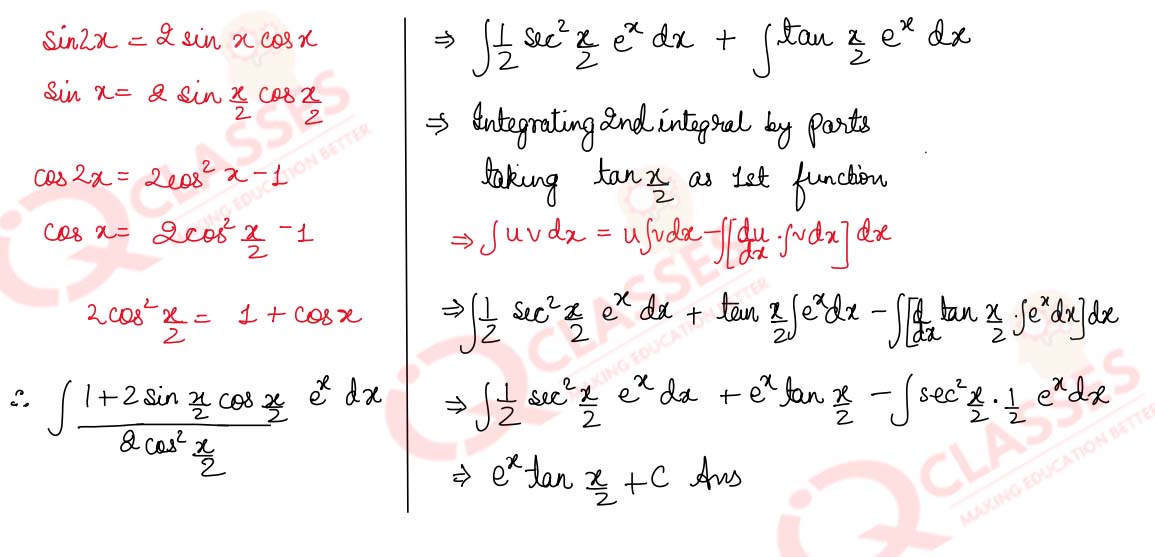 sin2x = 2 sin x cos x
sin x = 2 sin x/2 cos x/2
cos 2x = 2cos² x - 1
cos x = 2cos² x/2 - 1
2cos² x/2 = 1 + cos x
∴ ∫ (1 + 2 sin x/2 cos x/2)/(2 cos² x/2) eˣ dx
⇒ ∫ 1/2 sec² x/2 eˣ dx + ∫ tan x/2 eˣ dx
⇒ Integrating 2nd integral by parts
taking tan x/2 as 1st function
⇒ ∫ u v dx = u ∫v dx - ∫[du/dx · ∫v dx] dx
⇒ ∫ 1/2 sec² x/2 eˣ dx + tan x/2 ∫eˣ dx - ∫[d/dx tan x/2 · ∫eˣ dx] dx
⇒ ∫ 1/2 sec² x/2 eˣ dx + eˣ tan x/2 - ∫ sec² x/2 · 1/2 eˣ dx
⇒ eˣ tan x/2 + C Ans
IQ CLASSES
MAKING EDUCATION BETTER
IQ CLASSES
MAKING EDUCATION BETTER
IQ CLASSES
MAKING EDUCATION BETTER